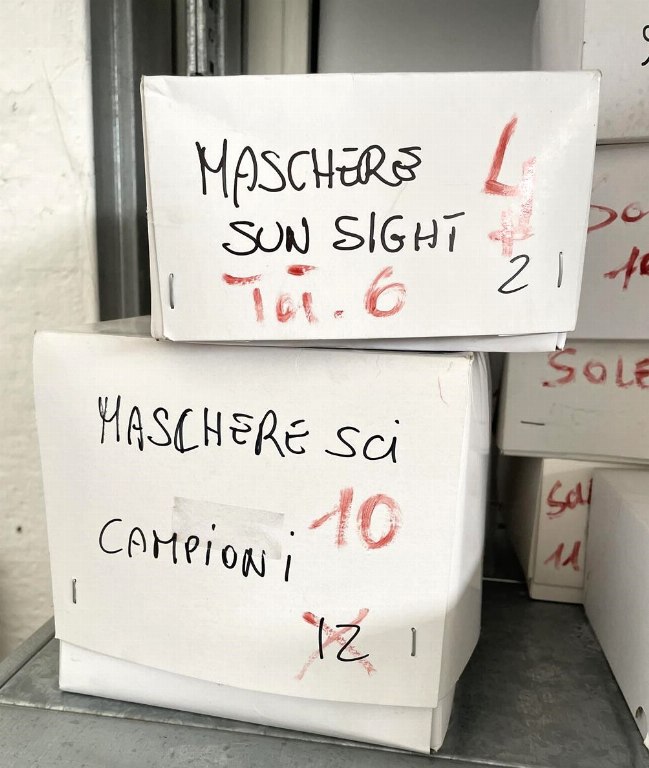 MASCHERE
SUN SIGHT
Tot. 6
2
MASCHERE SCI
CAMPIONI
10
12
SOLE
11